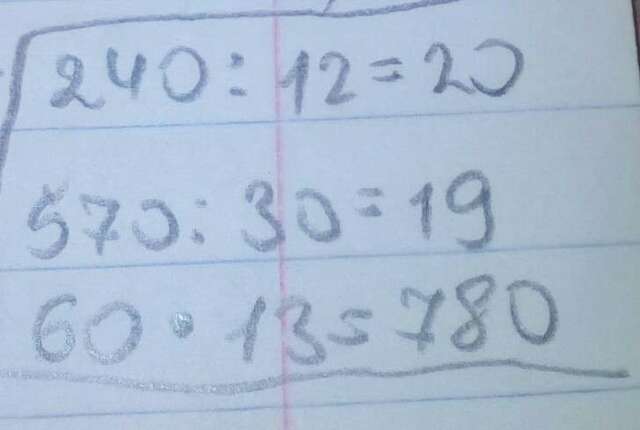 240 : 12 = 20
570 : 30 = 19
60 · 13 = 780